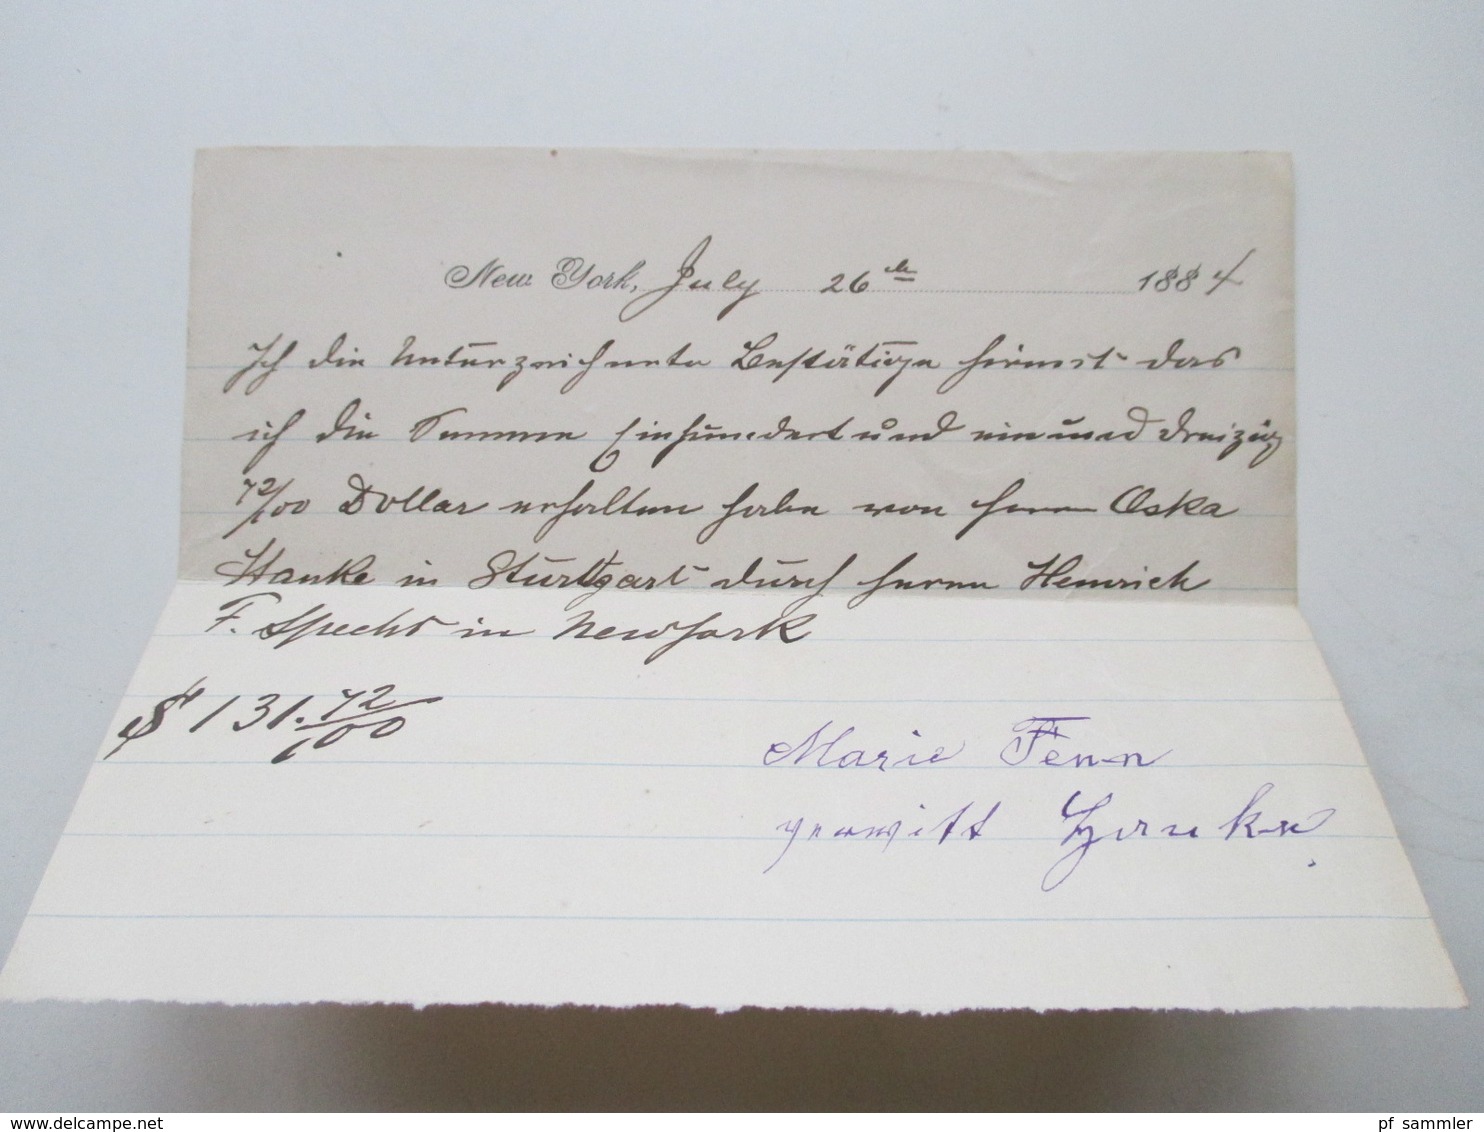 New York, July 26th 1884
Ich die Unturzeichnete Bestätige hirmit das
ich die Summe Einhundert und ein und dreizig
72/100 Dollar erhalten habe von Herrn Oska
Hanke in Sturtgart durch herrn Heinrich
F. Specht in Newyork
$131.72/100
Marie Fenn
gewwitt Hanke.
www.delcampe.net
pf_sammler